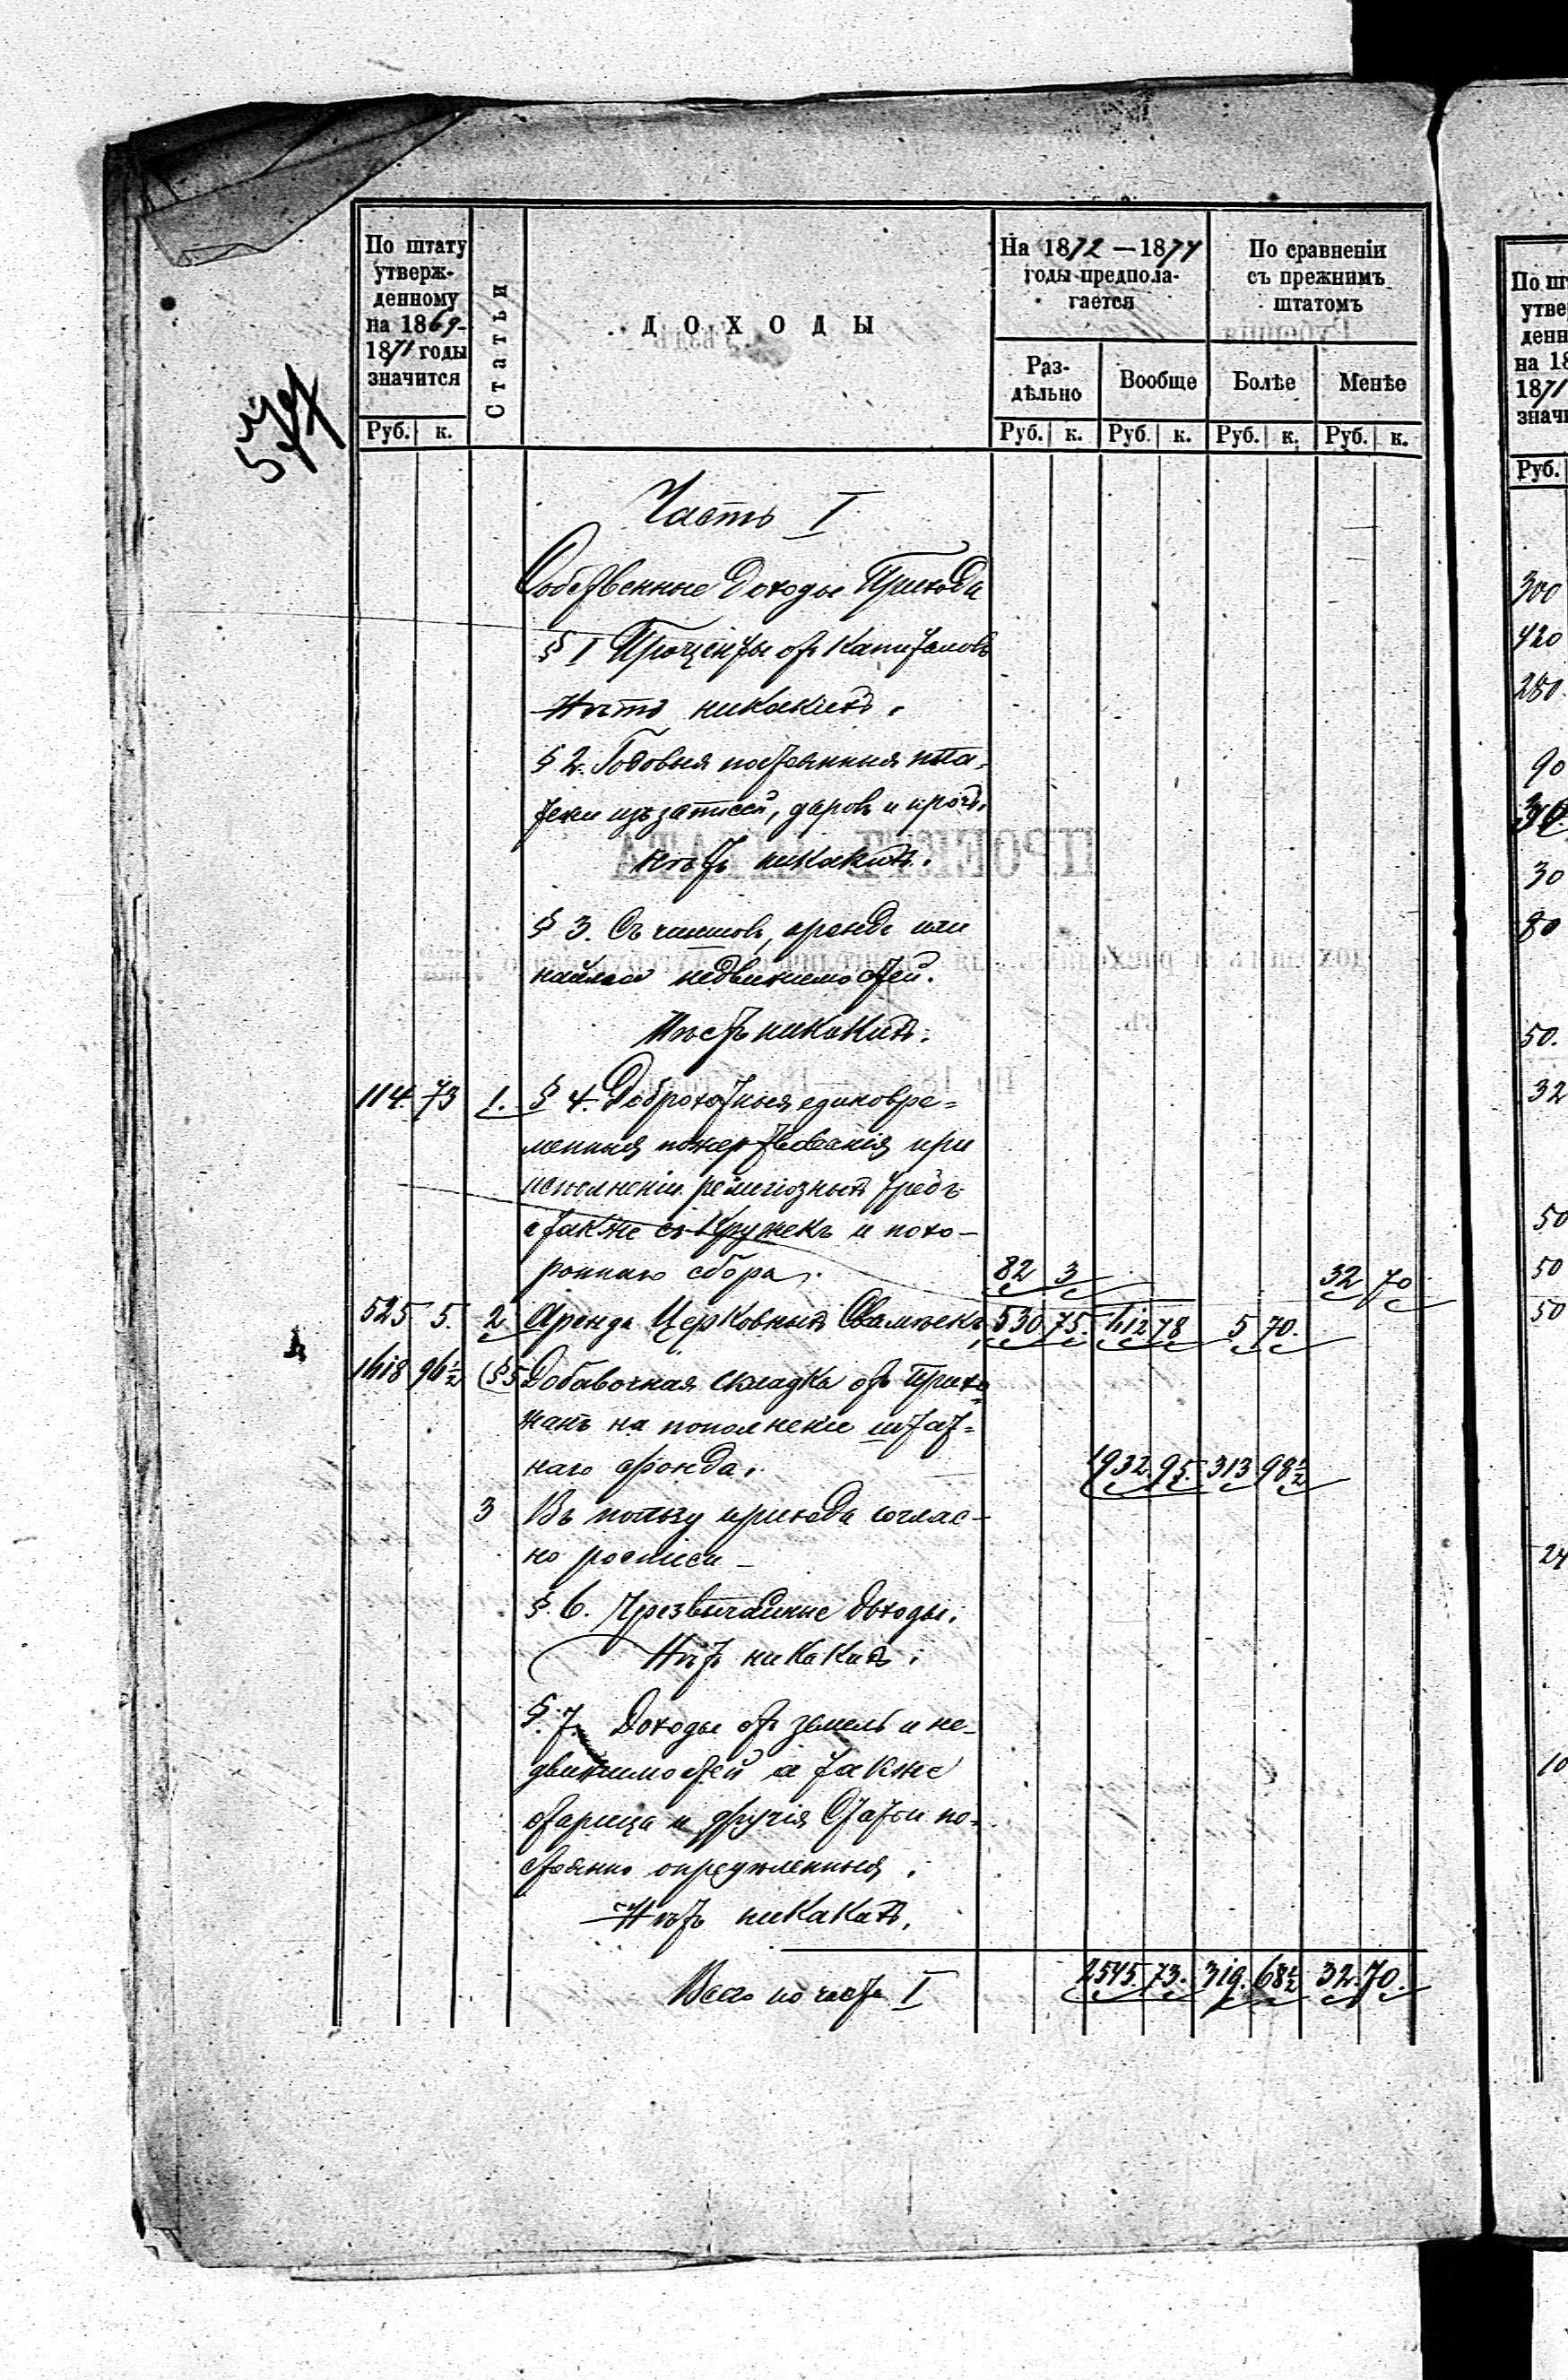 По штату
утверж-
денному
на 1869-
1871 годы
значится
Статьи
ДОХОДЫ
На 1872 — 1874
годы предпола-
гается
По сравненіи
съ прежнимъ
штатомъ
Раз-
дѣльно
Вообще
Болѣе
Менѣе
Руб. к.
Руб. к. Руб. к. Руб. к. Руб. к.
Часть I
Собственные доходы Прихода
§ 1 Проценты отъ Капиталовъ
Нѣтъ никакихъ.
§ 2. Годовыя постоянныя пла-
тежи изъ записей, даровъ и проч.
Нѣтъ никакихъ.
§ 3. Съ чиншовъ, арендъ или
найма недвижимостей.
Нѣтъ никакихъ.
114. 73 1. § 4. Доброхотныя единовре-
менныя пожертвованія при
исполненіи религіозныхъ требъ
а также съ кружекъ и похо-
роннаго сбора. 82 3 32 70
525 5. 2 Аренда Церковныхъ Скамѣекъ 530 75. 612 78 5 70.
1618 96½ (§5 Добавочная складка отъ Прихо-
жанъ на пополненіе штат-
наго фонда. 1932. 95. 313 98½
3 Въ пользу прихода соглас-
но росписи —
§. 6. Чрезвычайные доходы.
Нѣтъ никакихъ.
§. 7. Доходы отъ земель и не-
движимостей а также
и другія Статьи по-
стоянно опредѣленныя.
Нѣтъ никакихъ.
Всего по части I 2545. 73. 319. 68½ 32. 70.
По шт
утве
денн
на 18
1871
значи
Руб.
300
420
280
90
30
30
80
50.
32
50
50
50
24
10